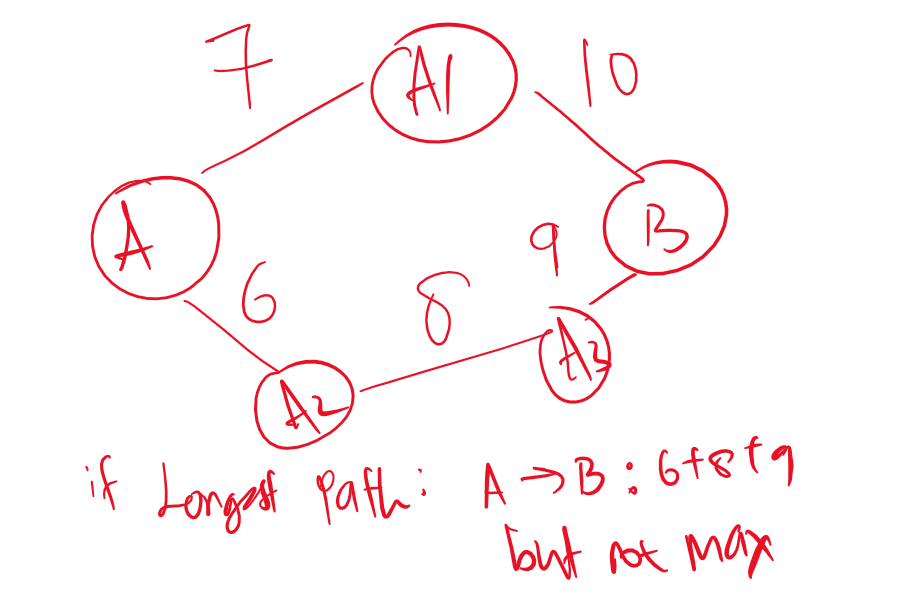 7
A1
10
A
B
6
8
9
A2
A3
if Longest Path: A → B : 6+8+9
but not max